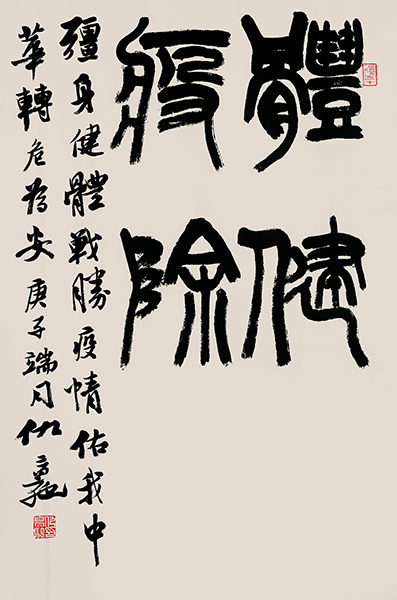 體健
疫除
彊身健體戰勝疫情佑我中
華轉危為安 庚子端月仇